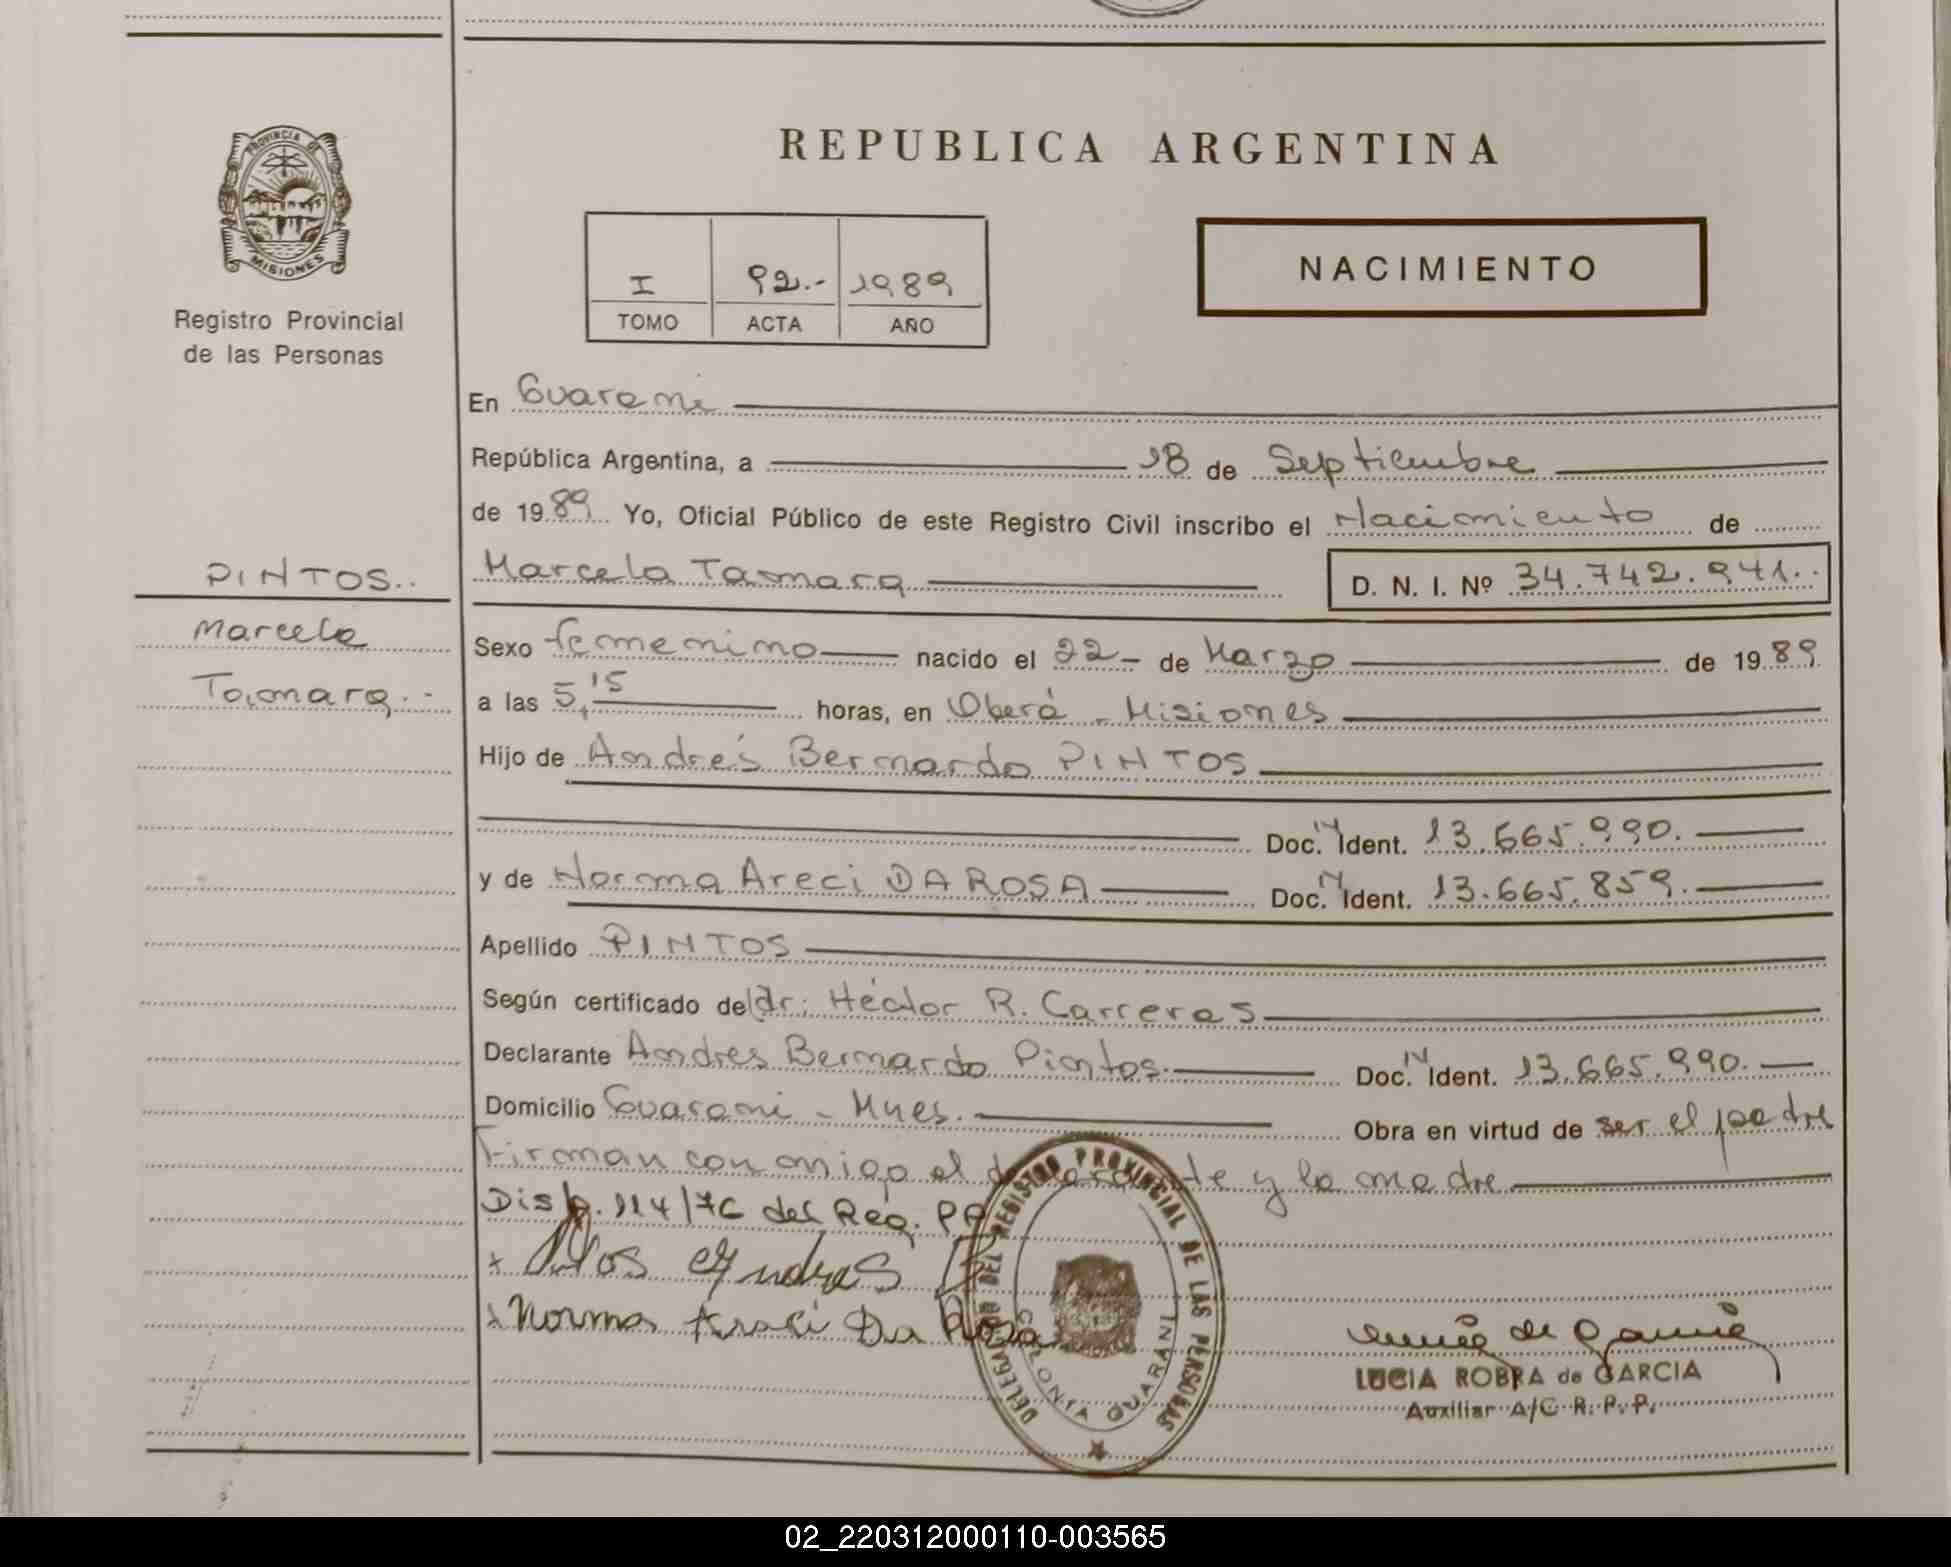 PROVINCIA DE
MISIONES
Registro Provincial
de las Personas
REPUBLICA ARGENTINA
I 92.- 1989
TOMO ACTA AÑO
NACIMIENTO
En Guarani
República Argentina, a 18 de Septiembre
de 1989 Yo, Oficial Público de este Registro Civil inscribo el Nacimiento de
PINTOS..
Marcela Tamara D. N. I. Nº 34.742.941..
Marcela
Sexo femenino nacido el 22- de Marzo de 1989
Tamara.-
a las 5,15 horas, en Oberá - Misiones
Hijo de Andrés Bernardo PINTOS
Doc. N Ident. 13.665.990.
y de Norma Areci DA ROSA Doc. N Ident. 13.665.859.
Apellido PINTOS
Según certificado del dr: Héctor R. Carreras
Declarante Andres Bernardo Pintos. Doc. N Ident. 13.665.990.
Domicilio Guarani - Mnes. Obra en virtud de ser el padre
Firman conmigo el declarante y la madre
Disp. 114/76 del Reg. PP
x Andres
x Norma Araci Da Rosa
DELEGACION DEL REGISTRO PROVINCIAL DE LAS PERSONAS
COLONIA GUARANI
LUCIA ROBRA de GARCIA
Auxiliar A/C R. P. P.
02_220312000110-003565